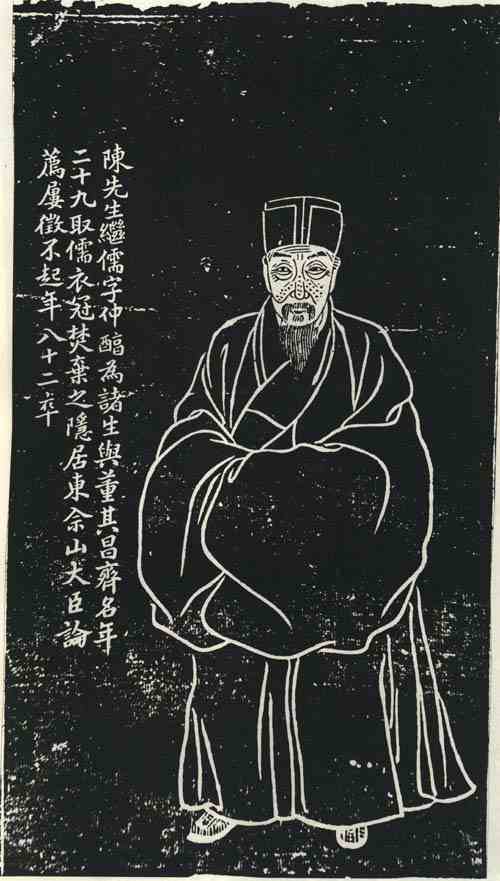 陳先生繼儒字仲醕為諸生與董其昌齊名年
二十九取儒衣冠焚棄之隱居東佘山大臣論
薦屢徵不起年八十二卒